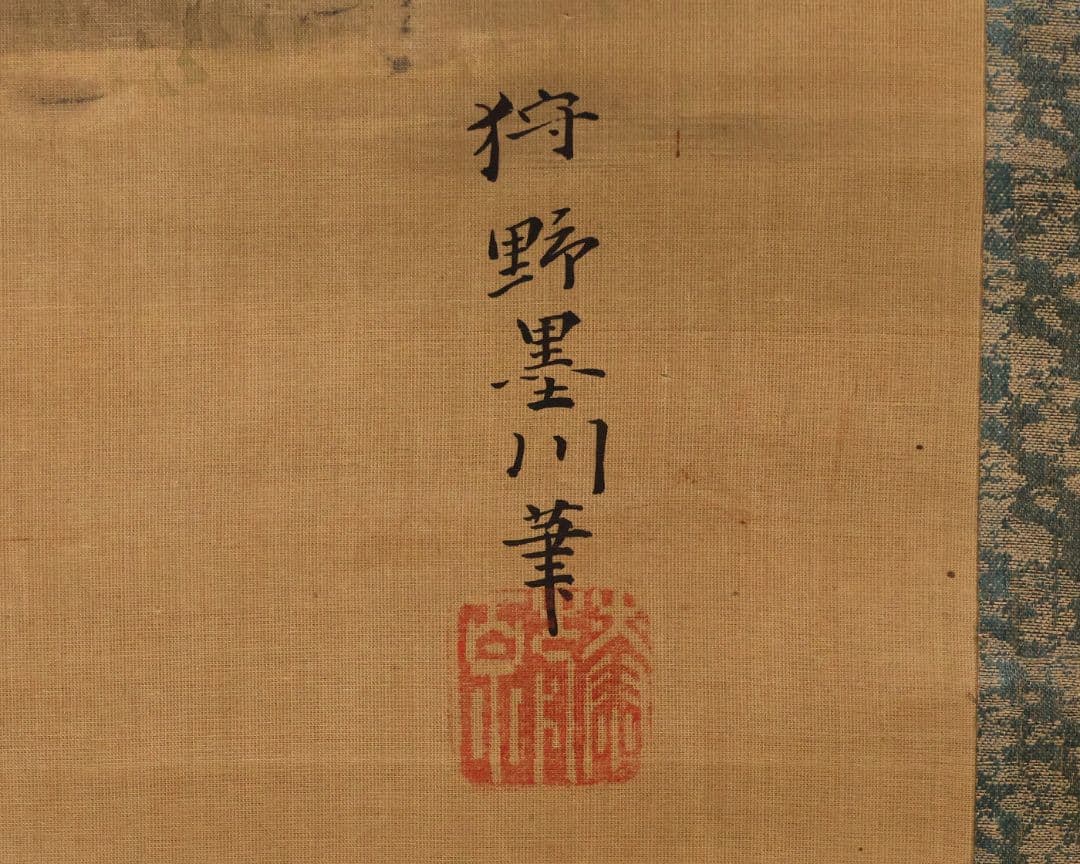 狩野墨川筆